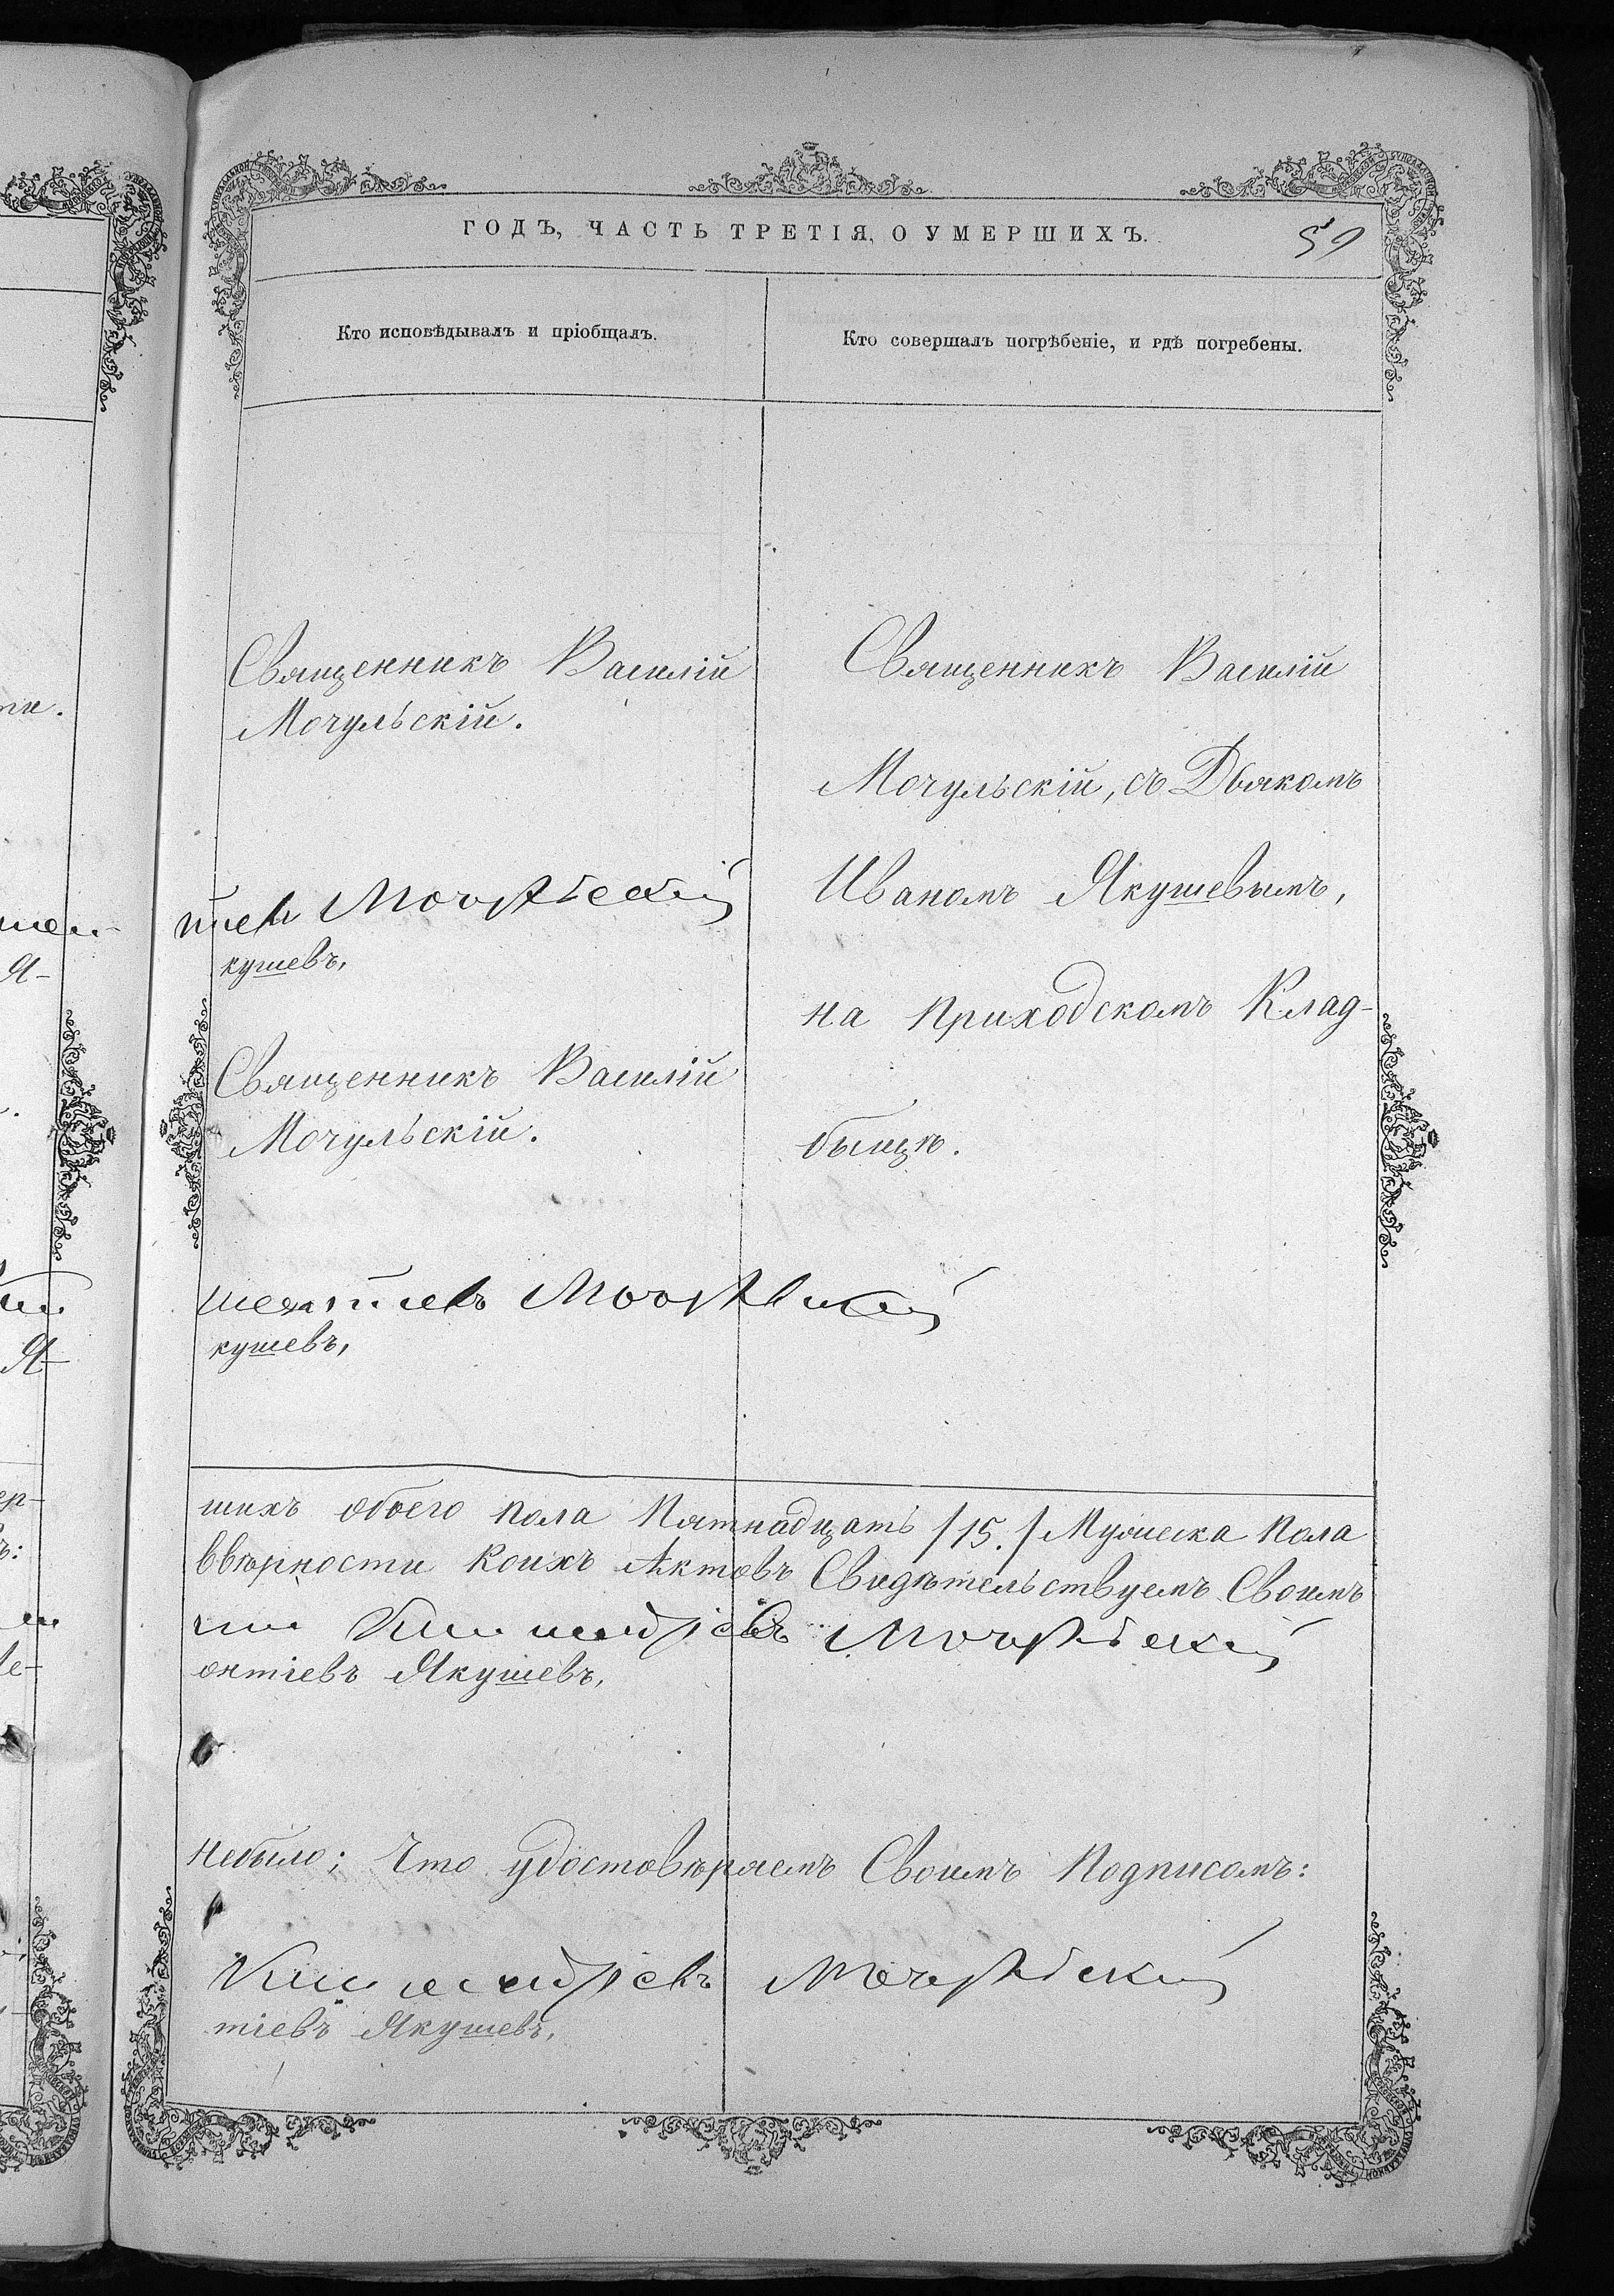 ГОДЪ, ЧАСТЬ ТРЕТІЯ, О УМЕРШИХЪ.
59
Кто исповѣдывалъ и пріобщалъ.
Кто совершалъ погрѣбеніе, и гдѣ погребены.
Священникъ Василій
Мочульскій.
Мочульскій
кушевъ,
Священникъ Василій
Мочульскій.
Мочульскій
кушевъ,
Священникъ Василій
Мочульскій, съ Дьякомъ
Иваномъ Якушевымъ,
на приходскомъ Клад-
бищѣ.
шихъ обоего пола Пятнадцать /15./ Мужеска пола
ввѣрности коихъ Актовъ Свидѣтельствуемъ Своимъ
Мочульскій
онтіевъ Якушевъ,
небыло; Что удостовѣряемъ Своимъ Подписомъ:
Мочульскій
тіевъ Якушевъ,